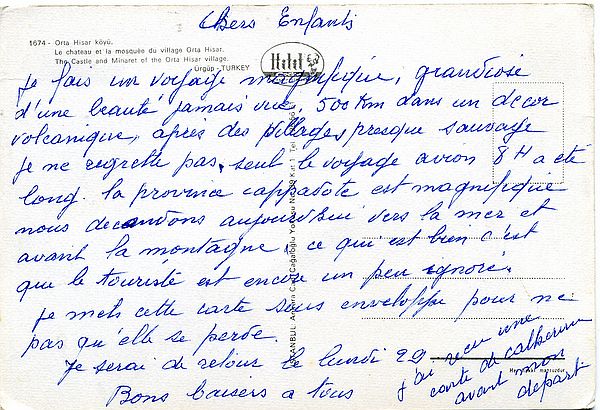 Chers Enfants
1674 - Orta Hisar köyü.
Le chateau et la mosquée du village Orta Hisar.
The Castle and Minaret of the Orta Hisar village.
Ürgüp - TURKEY
Je fais un voyage magnifique, grandiose
d'une beauté jamais vue, 500 Km dans un décor
volcanique, après des villages presque sauvage
je ne regrette pas, seul le voyage avion 8 H a été
long. la province cappadote est magnifique
nous decendons aujourd'hui vers la mer et
avant la montagne, ce qui est bien c'est
que le touriste est encore un peu ignoré.
Je mets cette carte sous enveloppe pour ne
pas qu'elle se perde.
Je serai de retour le lundi 29
Bons baisers a tous
j'ai reçu une
carte de Catherine
avant mon
départ
İSTANBUL